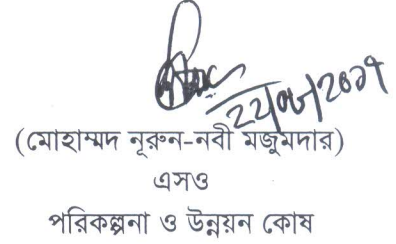 ২২/০৮/২০১৭
(মোহাম্মদ নূরুন-নবী মজুমদার)
এসও
পরিকল্পনা ও উন্নয়ন কোষ